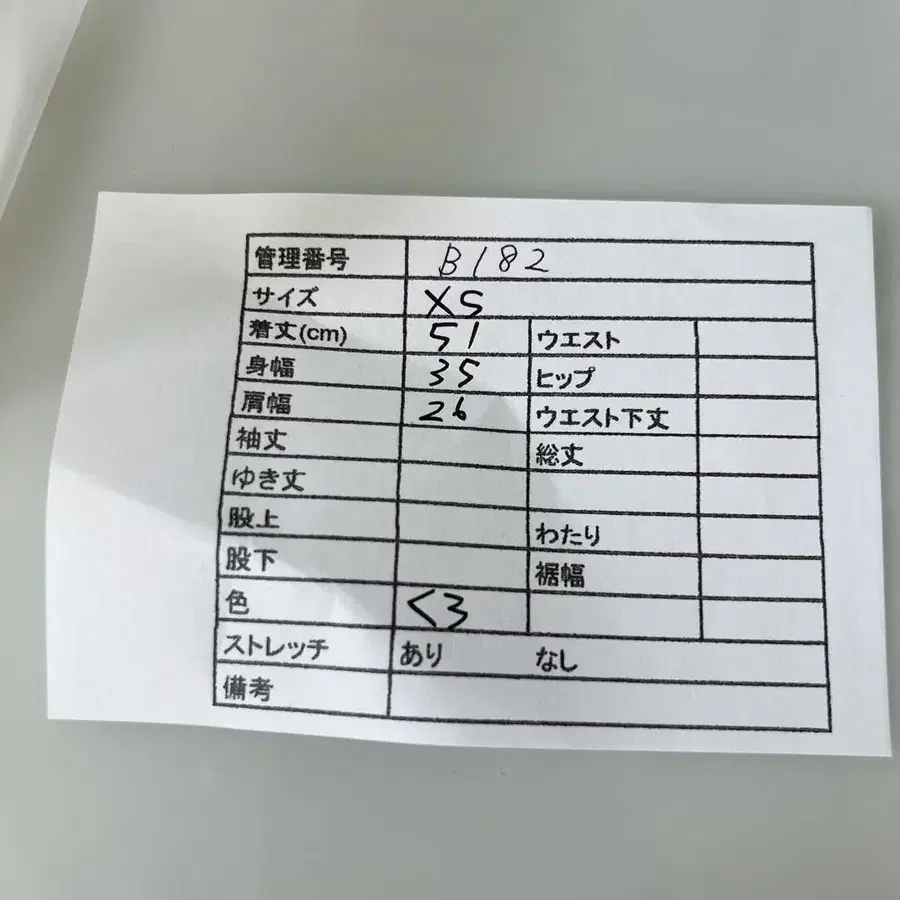 管理番号 B182
サイズ XS
着丈(cm) 51 ウエスト
身幅 35 ヒップ
肩幅 26 ウエスト下丈
袖丈 総丈
ゆき丈
股上 わたり
股下 裾幅
色 くろ
ストレッチ あり なし
備考